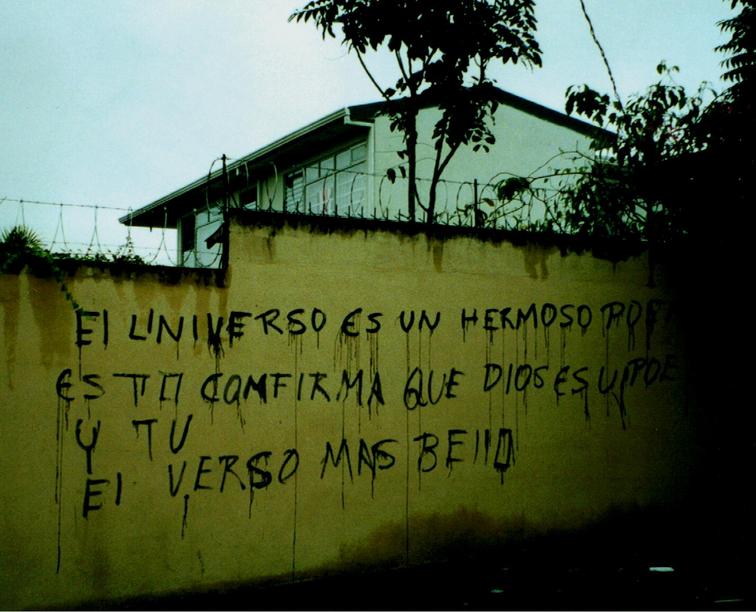 El UNIVERSO ES UN HERMOSO POE
ESTO COMFIRMA QUE DIOS ES U POE
Y TU
El VERSO MAS BEllO